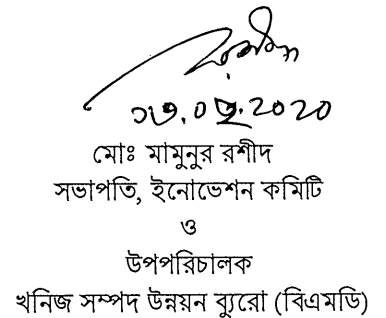 মোঃ মামুনুর রশীদ
সভাপতি, ইনোভেশন কমিটি
ও
উপপরিচালক
খনিজ সম্পদ উন্নয়ন ব্যুরো (বিএমডি)